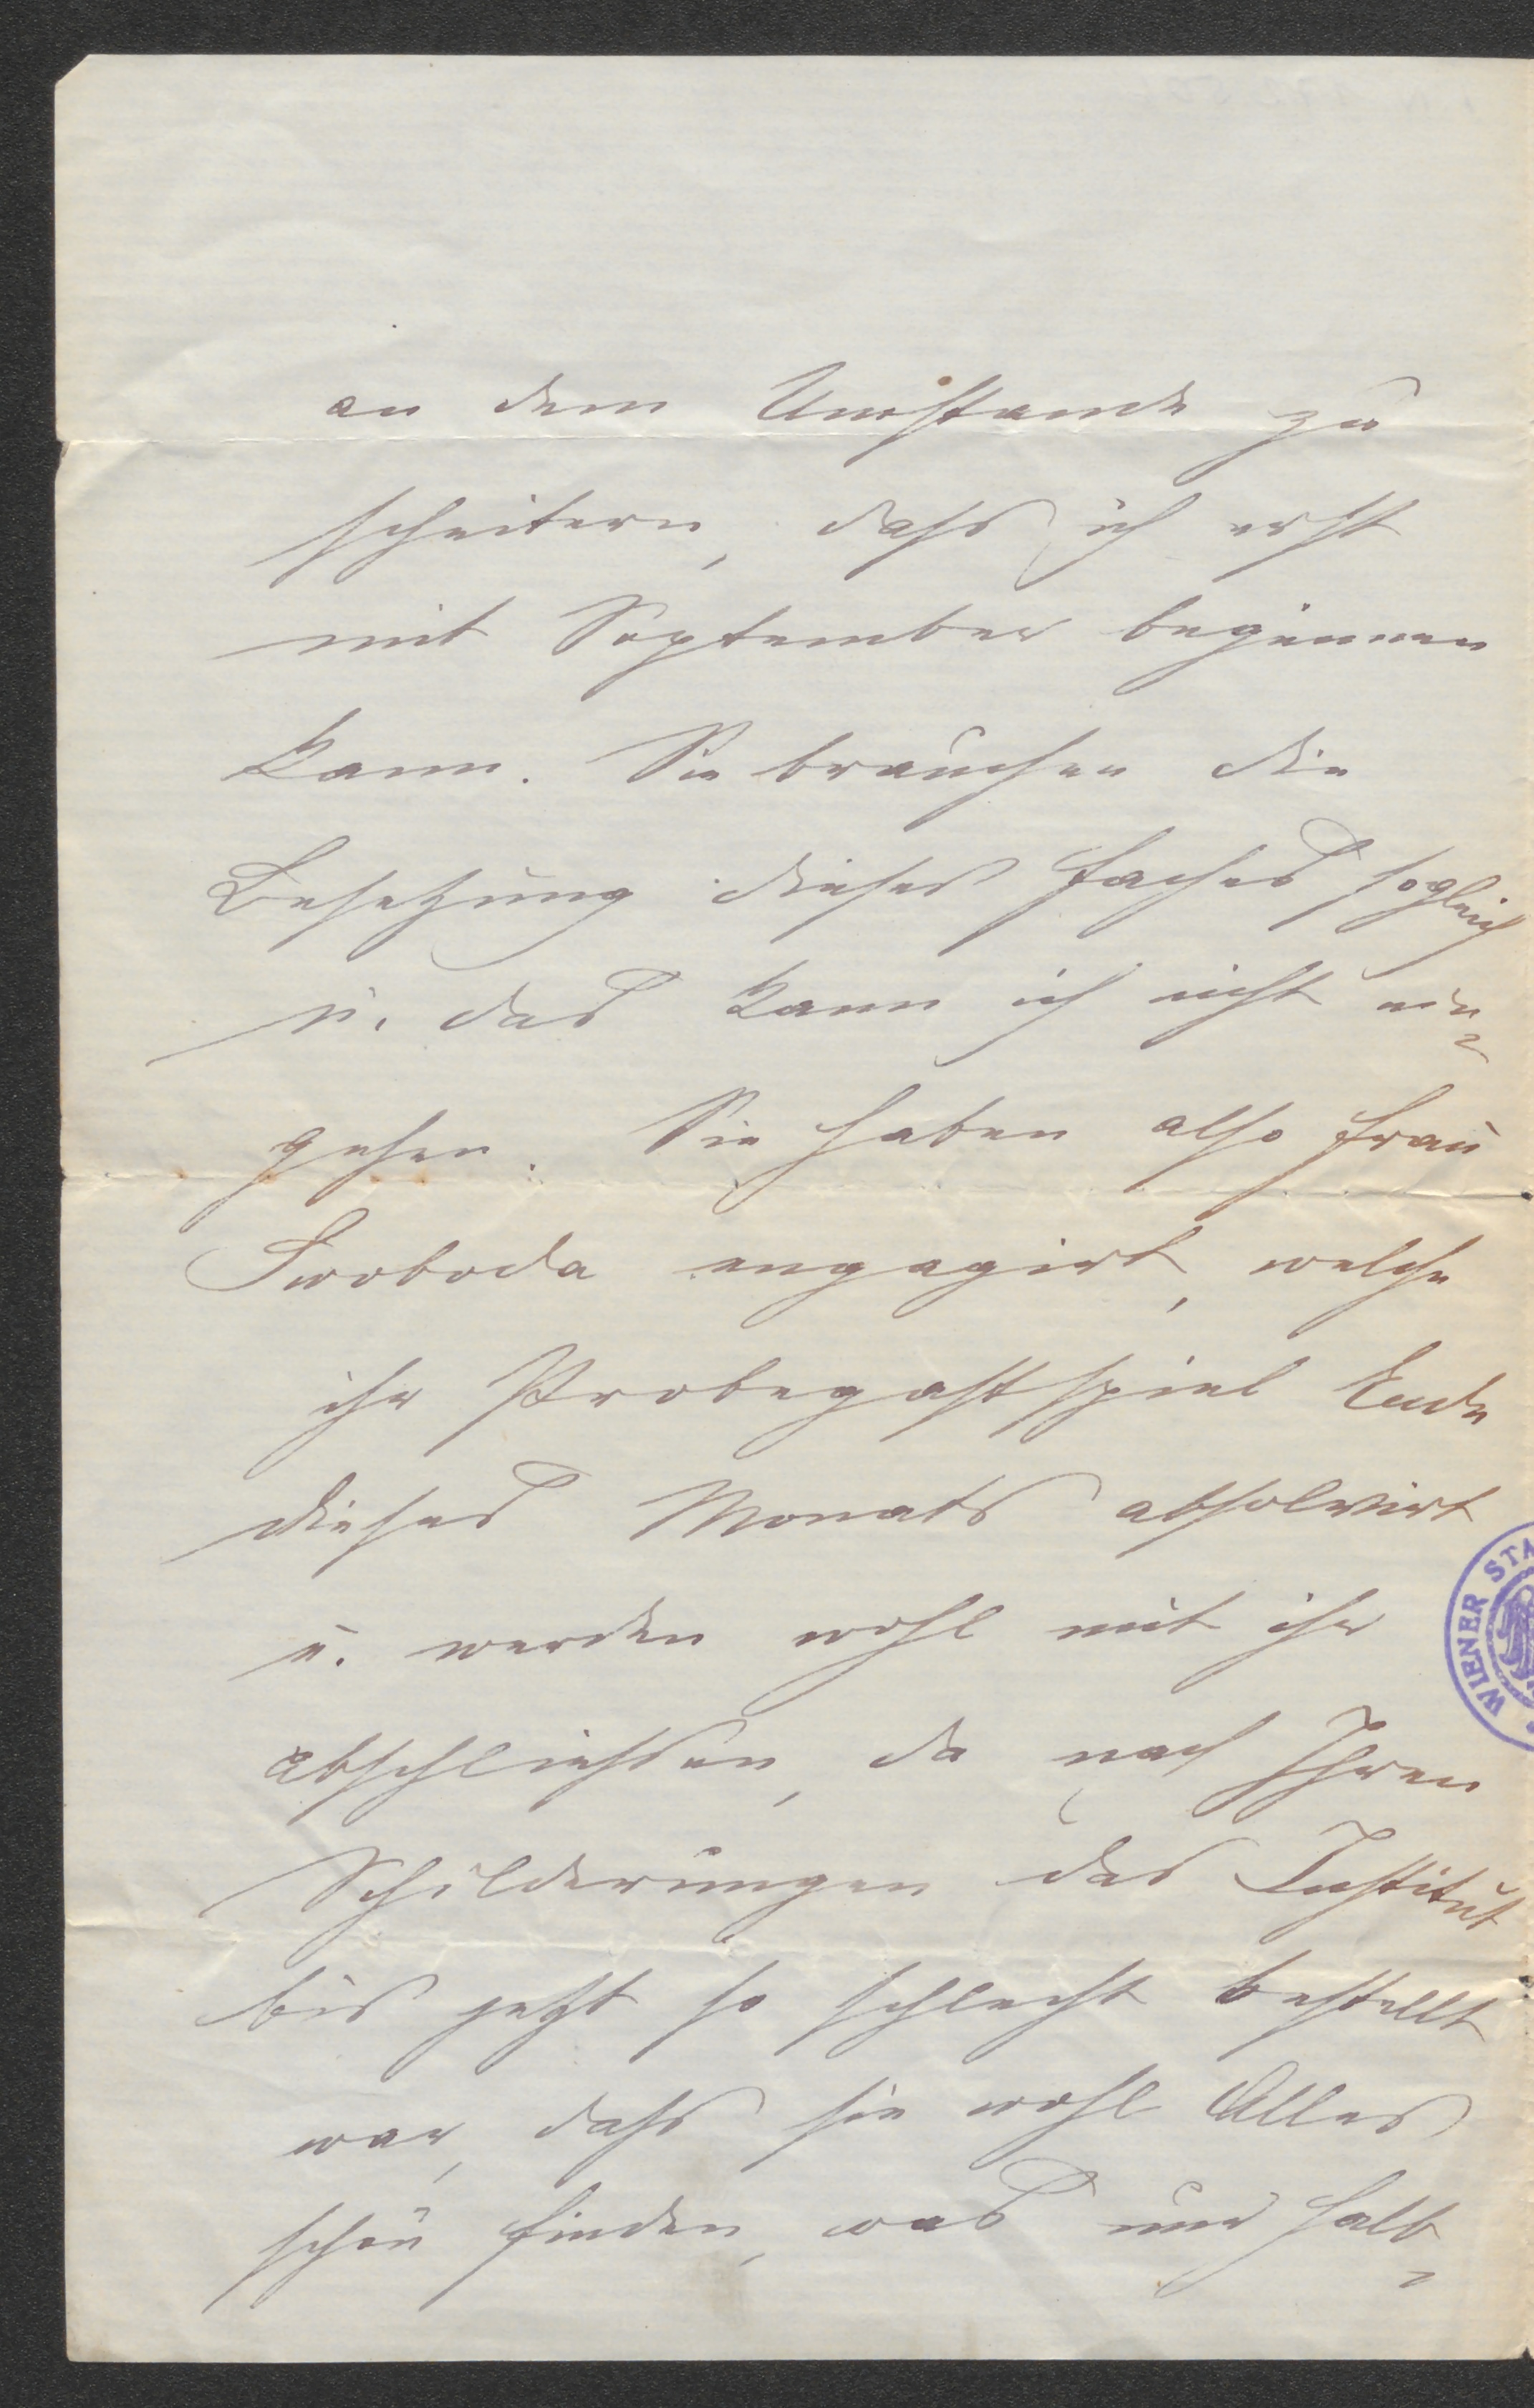 an dem Umstande zu
scheitern, dass ich erst
mit September beginnen
kann. Sie brauchen die
Besetzung dieses Faches sogleich
u. das kann ich nicht ein-
gehen. Sie haben also Frau
Swoboda engagirt, welche
ihr Probegastspiel Ende
dieses Monats absolvirt
u. werden wohl mit ihr
abschliessen, da nach Ihren
Schilderungen das Institut
bis jetzt so schlecht bestellt
war, dass sie wohl Alles
schön finden, was nur halb-
WIENER STA